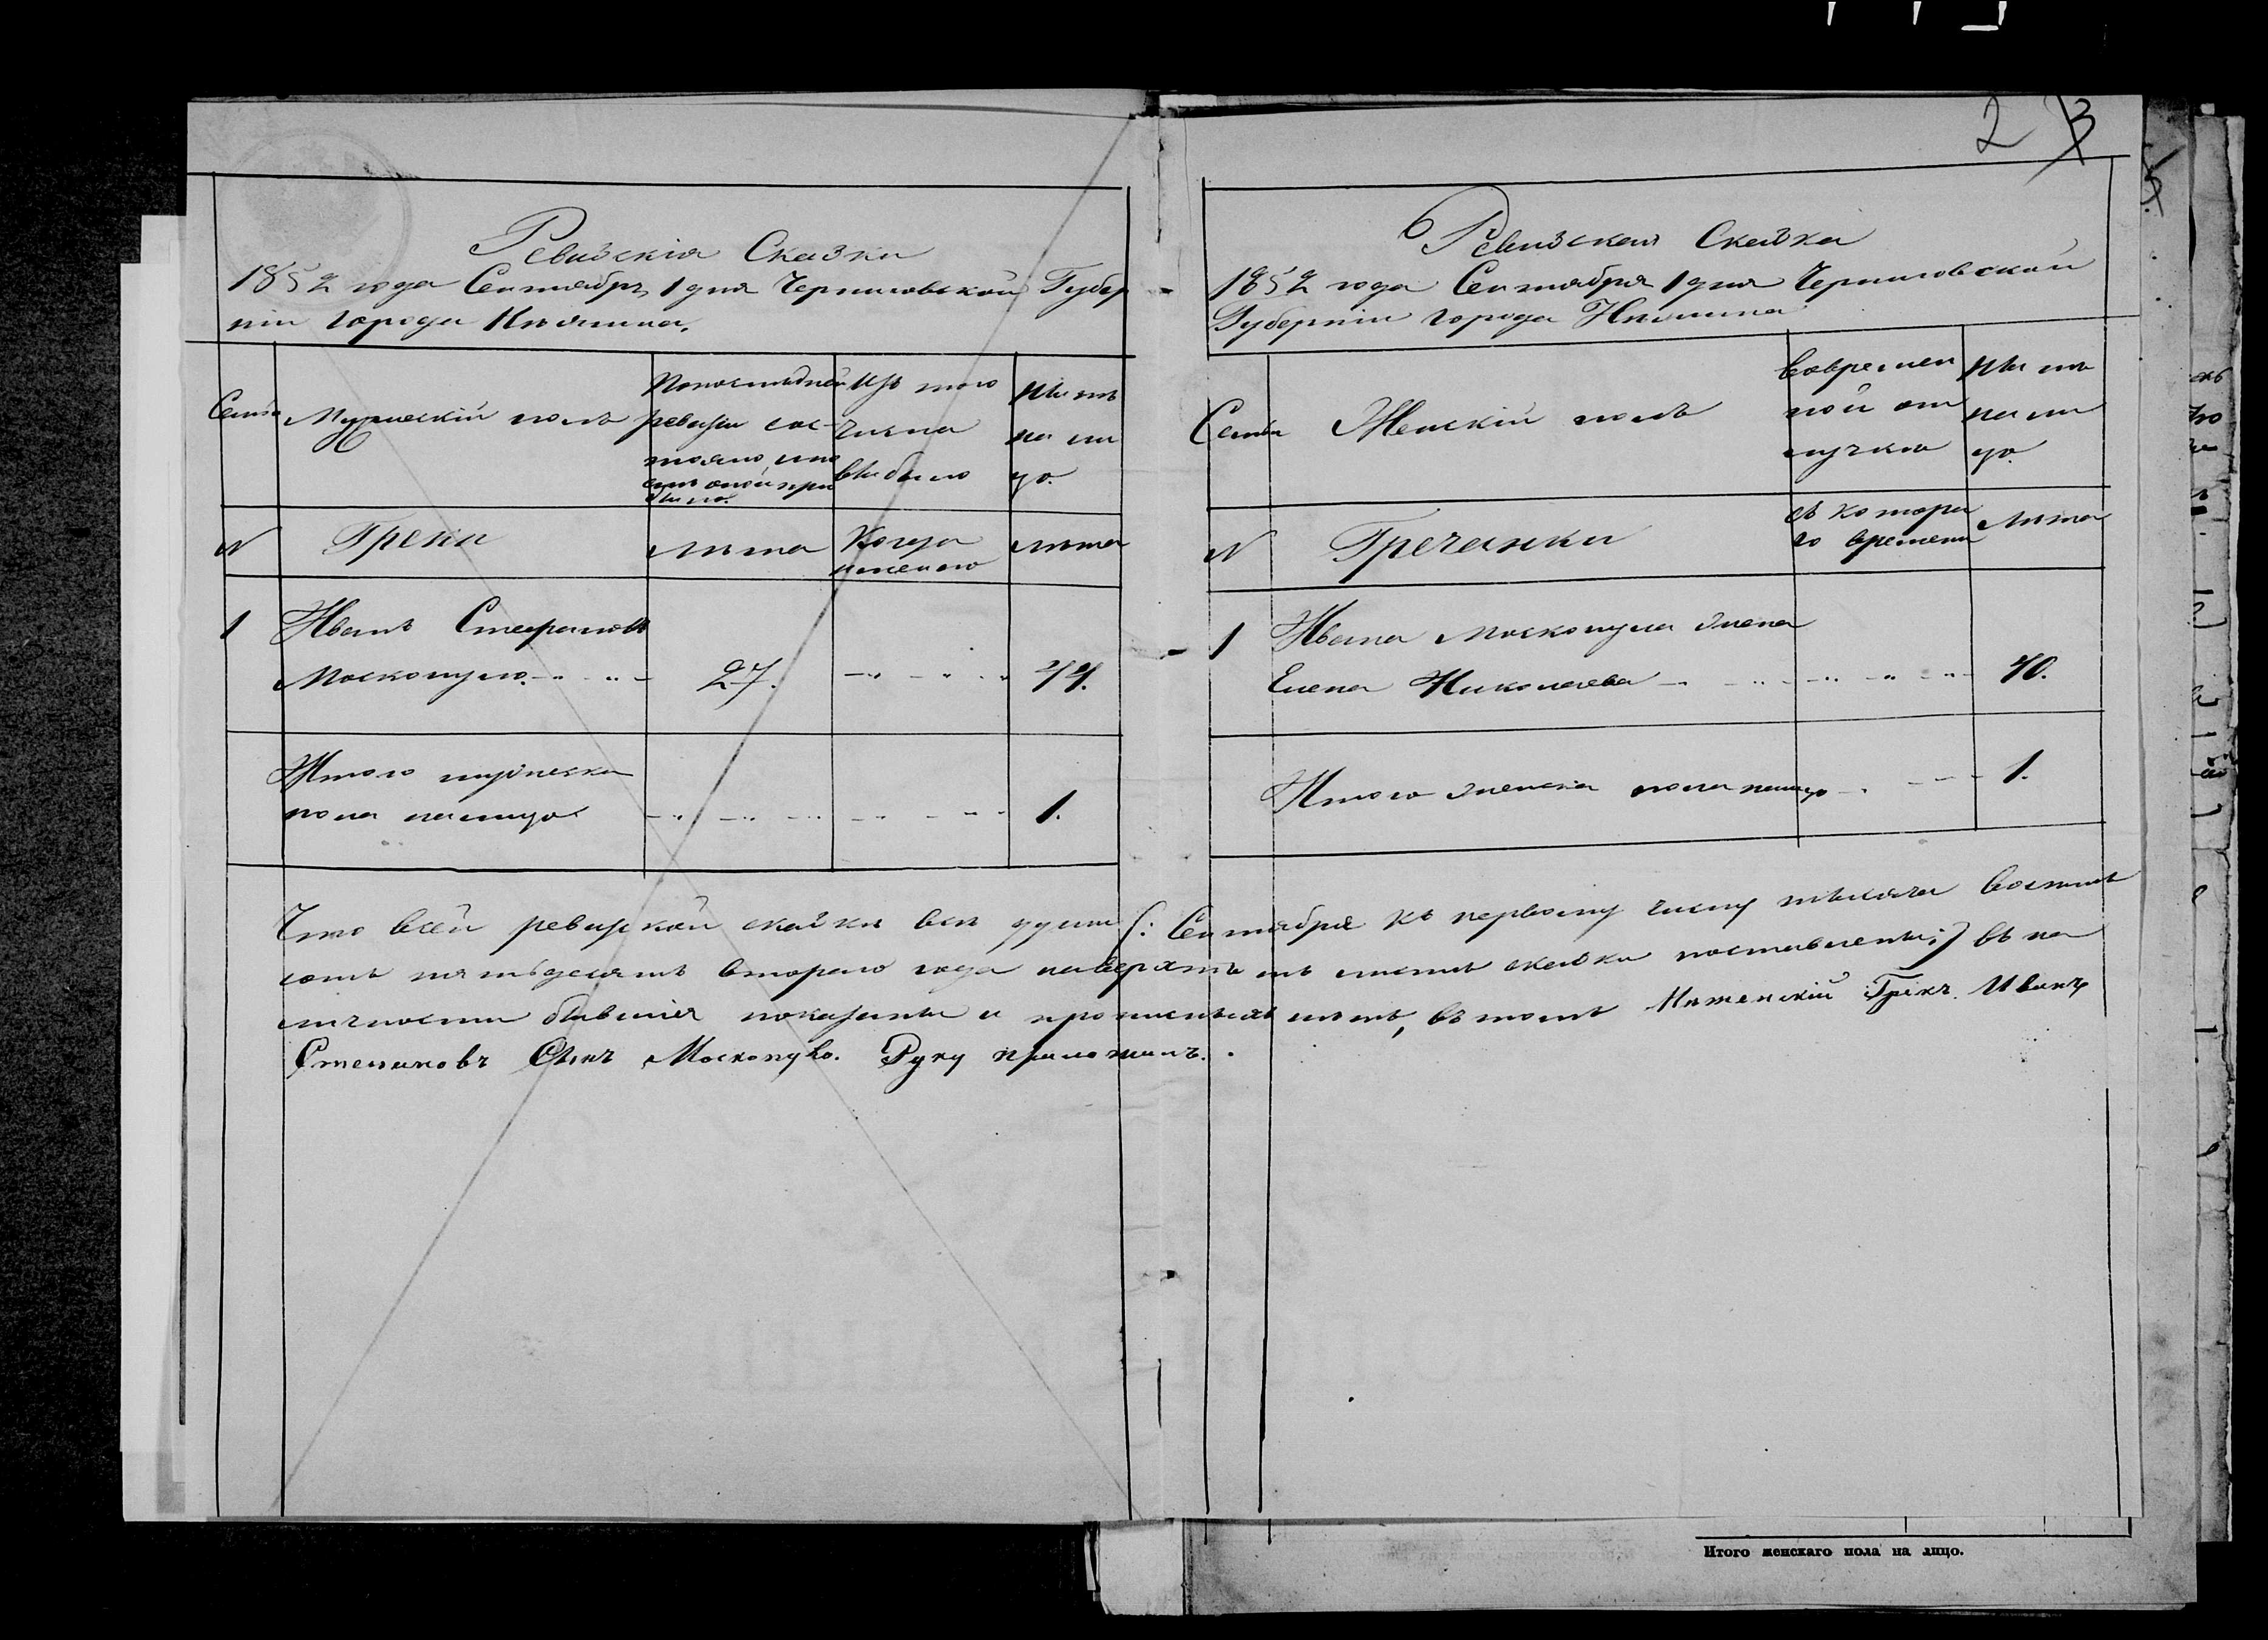 2 3
Ревизскія Сказки
1852 года Сентября 1 дня Черниговской Губер
ніи города Нѣжина.
Семьи
Мужескій полъ
По последней
ревизіи сос-
тояло, или
послѣ оной при
было.
Изъ того
числа
выбыло
Нынѣ
на ли
цо.
N
Греки
Лѣта
Когда
именно
Лѣта
1
Иванъ Стефановъ
Москопуло
27.
44.
Итого мужеска
пола налицо
1.
Ревизская Сказка
1852 года Сентября 1 дня Черниговской
Губерніи города Нѣжина
Семьи
Женскій полъ
Во времен
ной от
лучки
Ныне
на ли
цо.
N
Гречанки
съ которо
го времени
Лѣта
1
Ивана Москопула жена
Елена Николаева
40.
Итого женска пола налицо
1.
Что въ сей ревизской сказкѣ всѣ души (: Сентября къ первому числу тысяча восемь
сотъ пятьдесятъ второго года на верхъ сказки поставлены:) въ на
личности бывшія показаны и прописныхъ нѣтъ, въ томъ Нѣженскій Грекъ Иванъ
Степановъ Сынъ Москопуло. Руку приложилъ.
Итого женскаго пола на лицо.